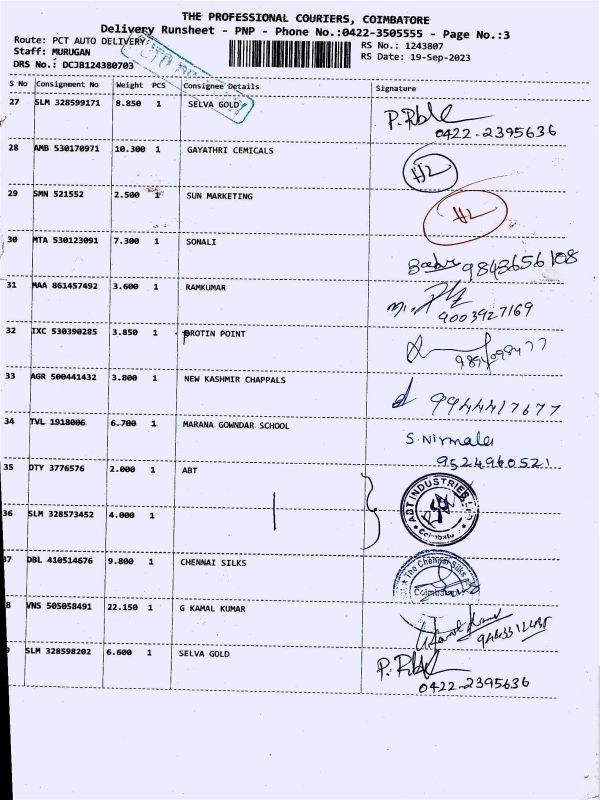 THE PROFESSIONAL COURIERS, COIMBATORE
Delivery Runsheet - PNP - Phone No.:0422-3505555 - Page No.:3
Route: PCT AUTO DELIVERY RS No.: 1243807
Staff: MURUGAN RS Date: 19-Sep-2023
DRS No.: DCJB124380703
S No Consignment No Weight PCS Consignee Details Signature
27 SLM 328599171 8.850 1 SELVA GOLD
0422-2395636
28 AMB 530170971 10.300 1 GAYATHRI CEMICALS
HL
29 SMN 521552 2.500 1 SUN MARKETING
HL
30 MTA 530123091 7.300 1 SONALI
9843656108
31 MAA 861457492 3.600 1 RAMKUMAR
9003927169
32 IXC 530390285 3.850 1 PROTIN POINT
33 AGR 500441432 3.800 1 NEW KASHMIR CHAPPALS
9944417677
34 TVL 1918006 6.700 1 MARANA GOWNDAR SCHOOL
S. Nirmala
9524960521
35 DTY 3776576 2.000 1 ABT
ABT INDUSTRIES
Coimbatore
36 SLM 328573452 4.000 1
37 DBL 410514676 9.800 1 CHENNAI SILKS
The Chennai Silks
Coimbatore
8 VNS 505058491 22.150 1 G KAMAL KUMAR
SLM 328598202 6.600 1 SELVA GOLD
0422-2395636